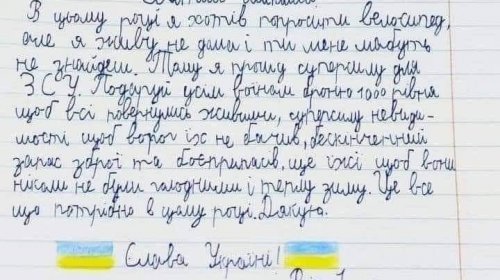 В цьому році я хотів попросити велосипед,
але я живу не дома і ти мене мабуть
не знайдеш. Тому я прошу суперсилу для
ЗСУ. Подаруй усім воїнам броню 1000 рівня
щоб всі повернулись живими, суперсилу невиди-
мості щоб ворог їх не бачив, бескінчений
запас зброї та боєприпасів, ще їжі щоб вони
ніколи не були голодними і теплу зиму. Це все
що потрібно в цьому році. Дякую.
Слава Україні!